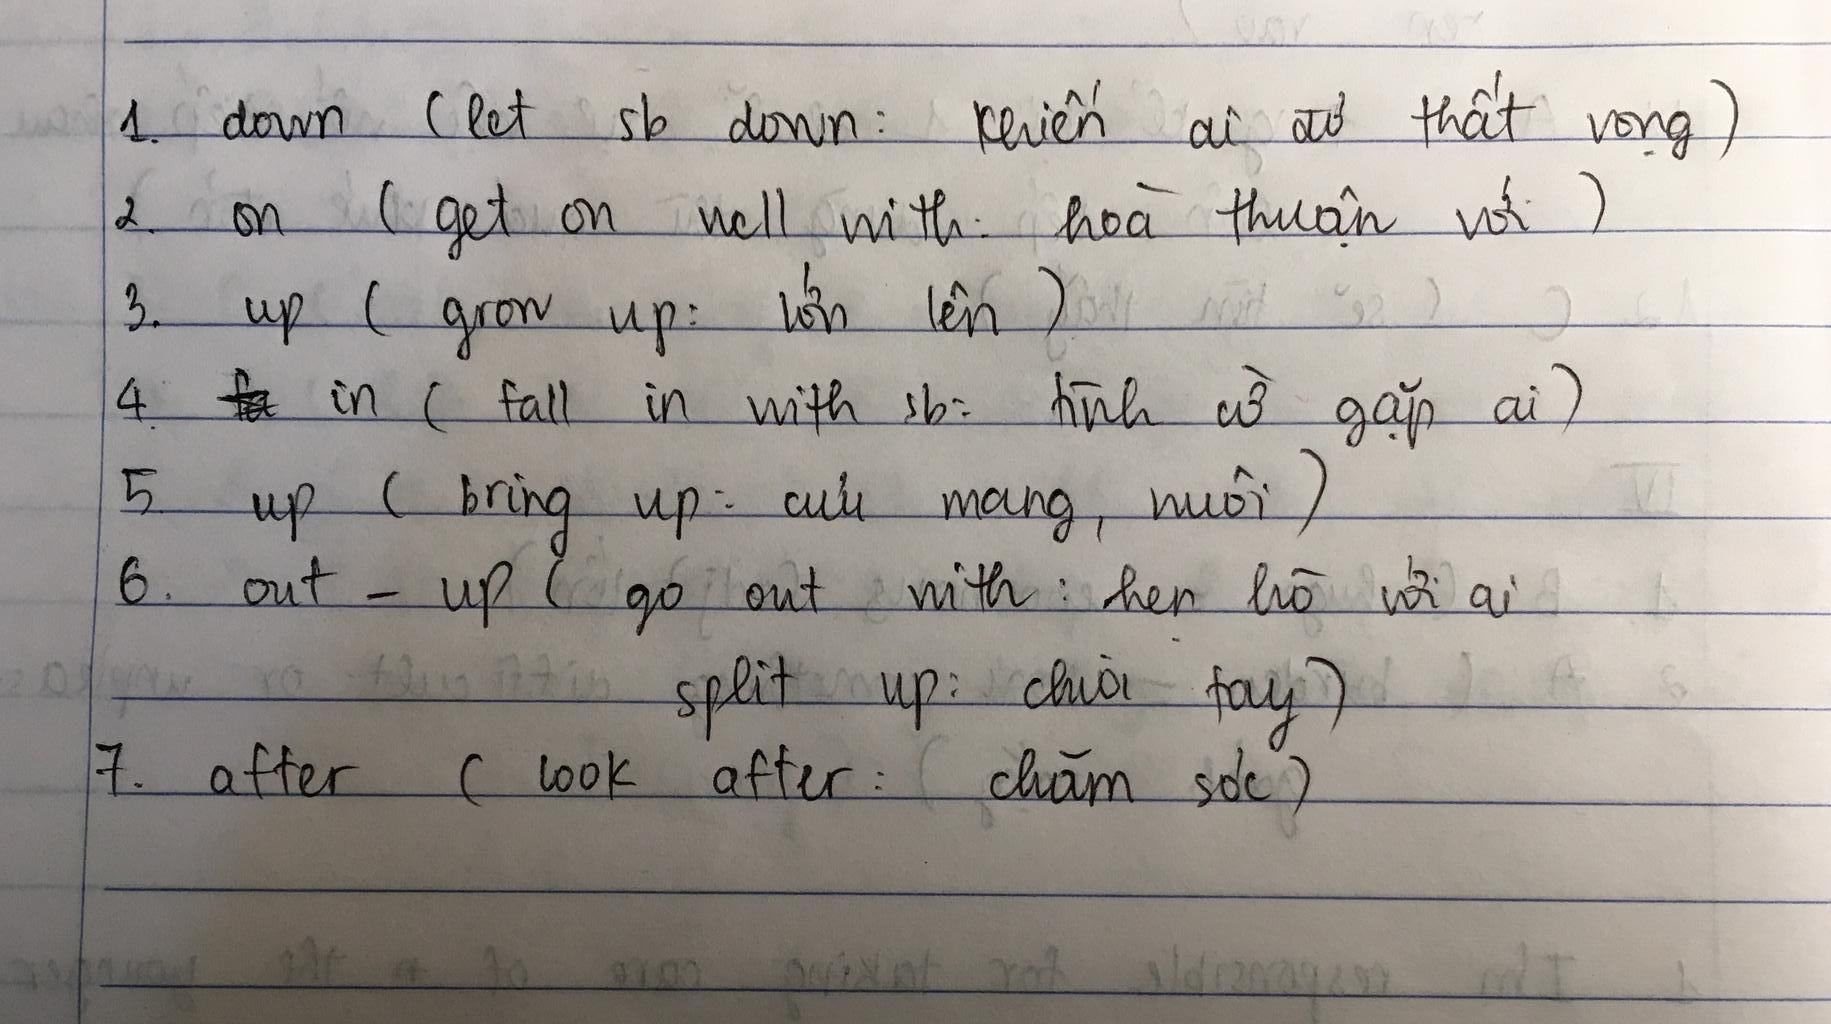 1. down (let sb down: khiến ai đó thất vọng)
2. on (get on well with: hoà thuận với)
3. up (grow up: lớn lên)
4. in (fall in with sb: tình cờ gặp ai)
5. up (bring up: cưu mang, nuôi)
6. out - up (go out with: hẹn hò với ai
split up: chia tay)
7. after (look after: chăm sóc)